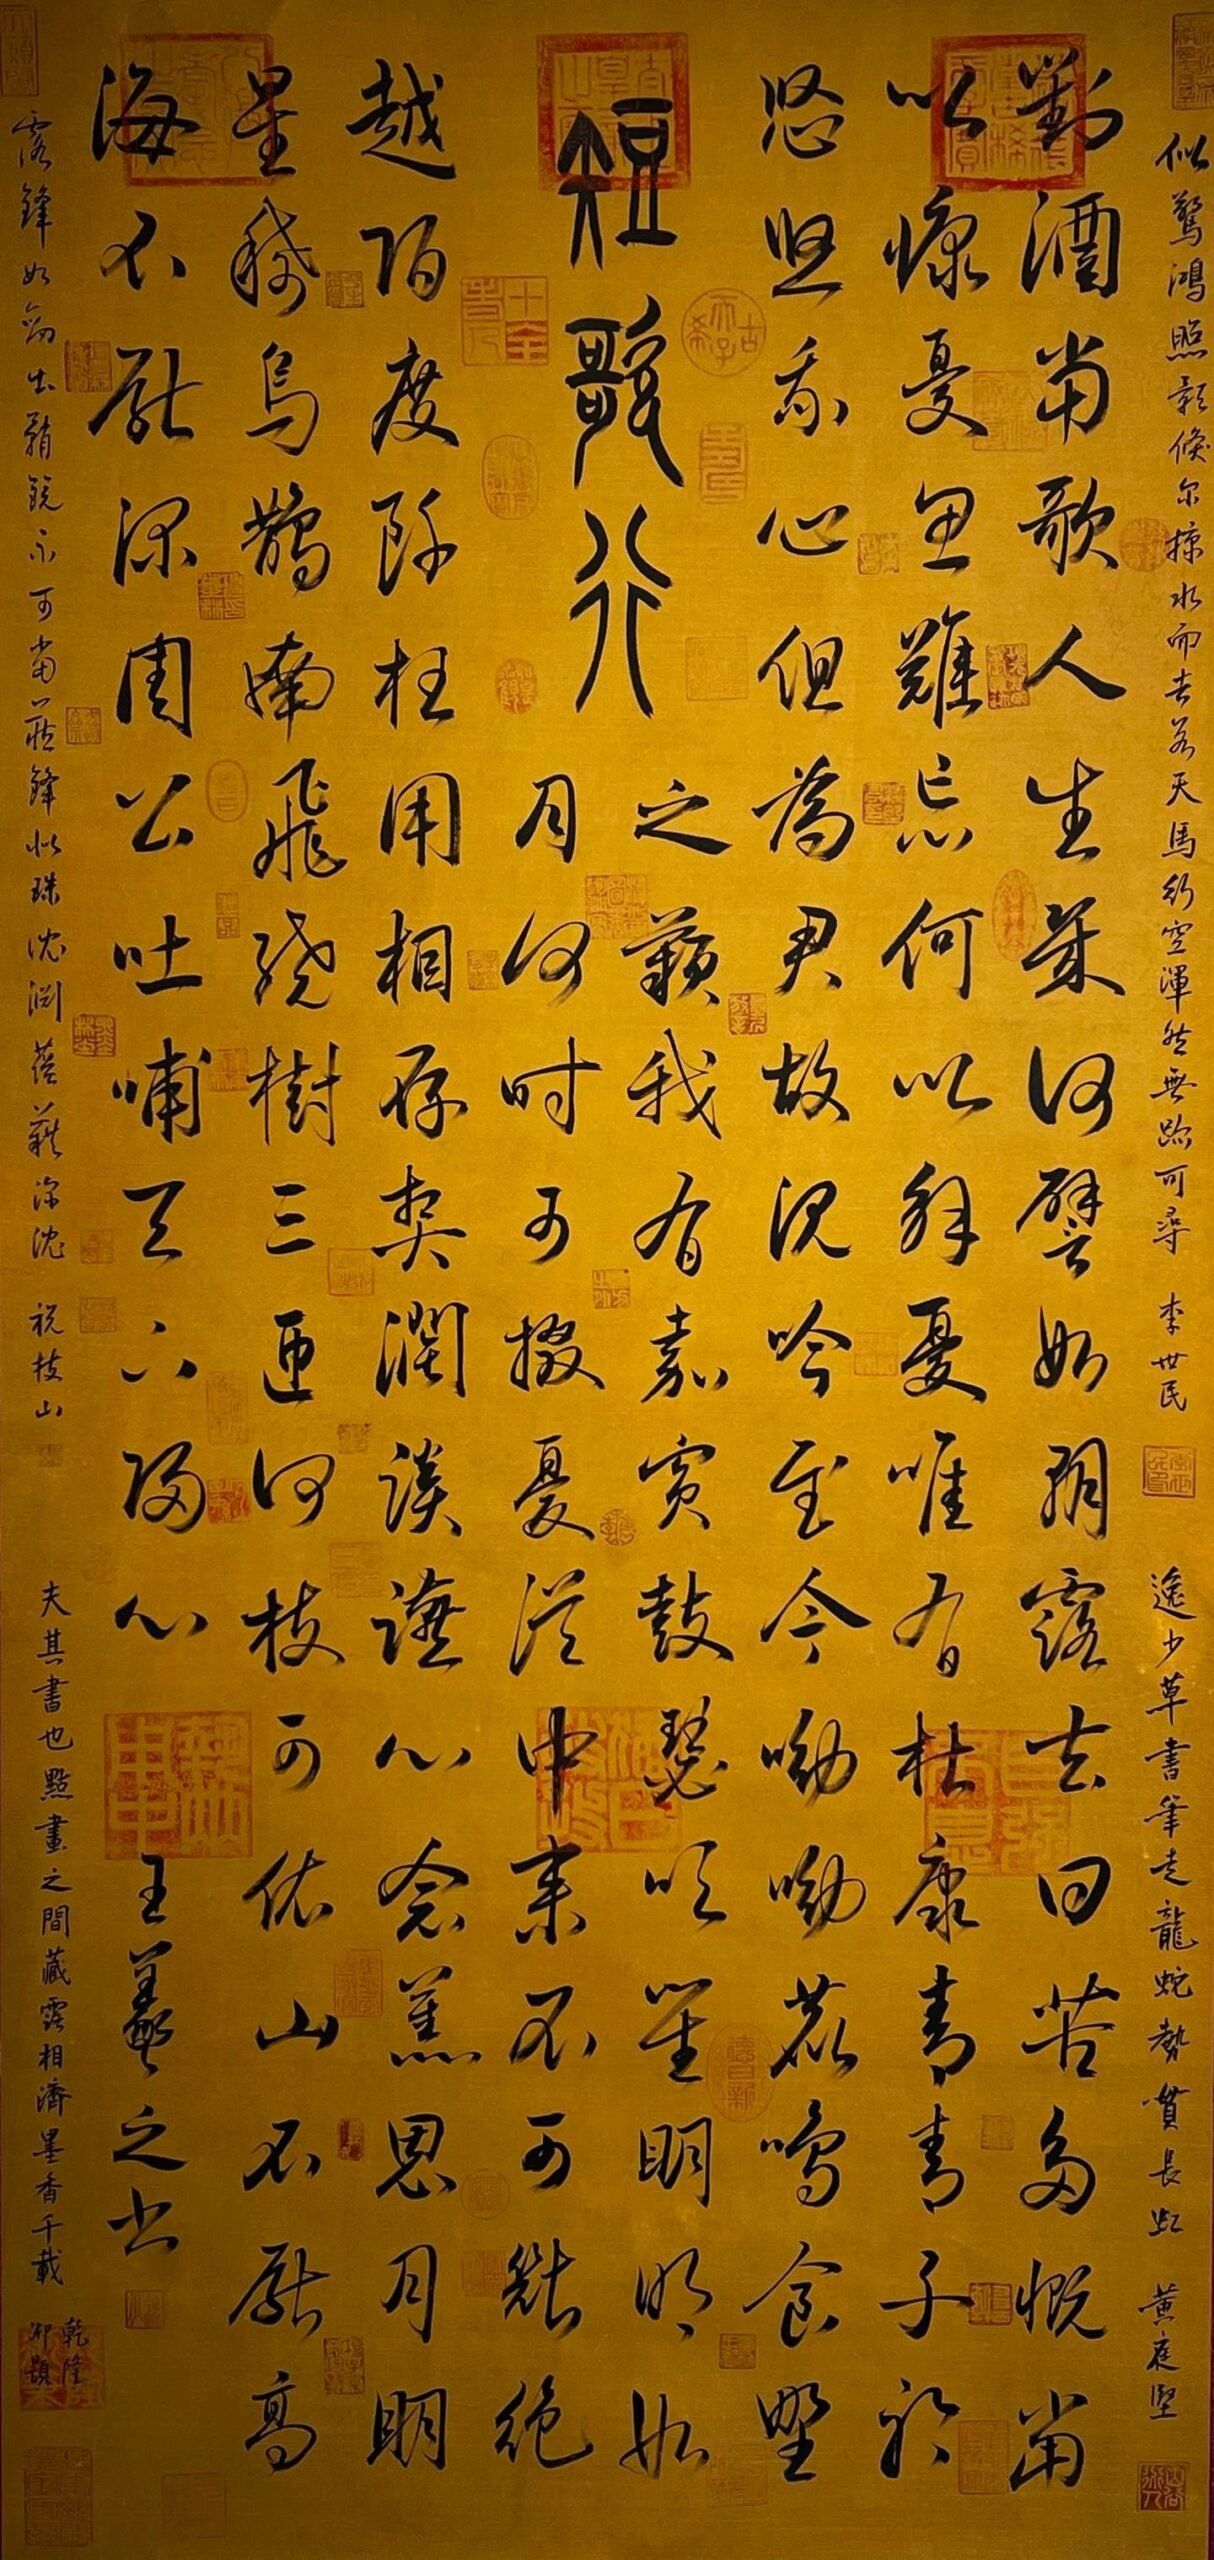 似驚鴻照影倏尔掠水而去若天馬行空渾然無跡可尋 李世民
逸少草書筆走龍蛇勢貫長虹 黄庭堅
對酒當歌人生幾何譬如朝露去日苦多慨當
以慷憂思難忘何以解憂唯有杜康青青子衿
悠悠我心但為君故沉吟至今呦呦鹿鳴食野
短歌行
之蘋我有嘉賓鼓瑟吹笙明明如
月何時可掇憂從中來不可斷絕
越陌度阡枉用相存契闊談讌心念舊恩月明
星稀烏鵲南飛繞樹三匝何枝可依山不厭高
海不厭深周公吐哺天下歸心 王羲之書
露鋒如劍出鞘銳不可當藏鋒似珠沈淵蘊藉深沈 祝枝山
夫其書也點畫之間藏露相濟墨香千載
乾隆
御題
十全老人
古希天子
德日新